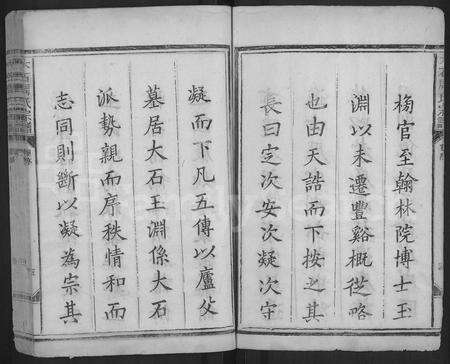 栯官至翰林院博士玉
淵以未遷豐谿概從略
也由天誥而下按之其
長曰定次安次凝次守
凝而下凡五傳以廬父
墓居大石王淵係大石
派勢親而序秩情和而
志同則斷以凝為宗其